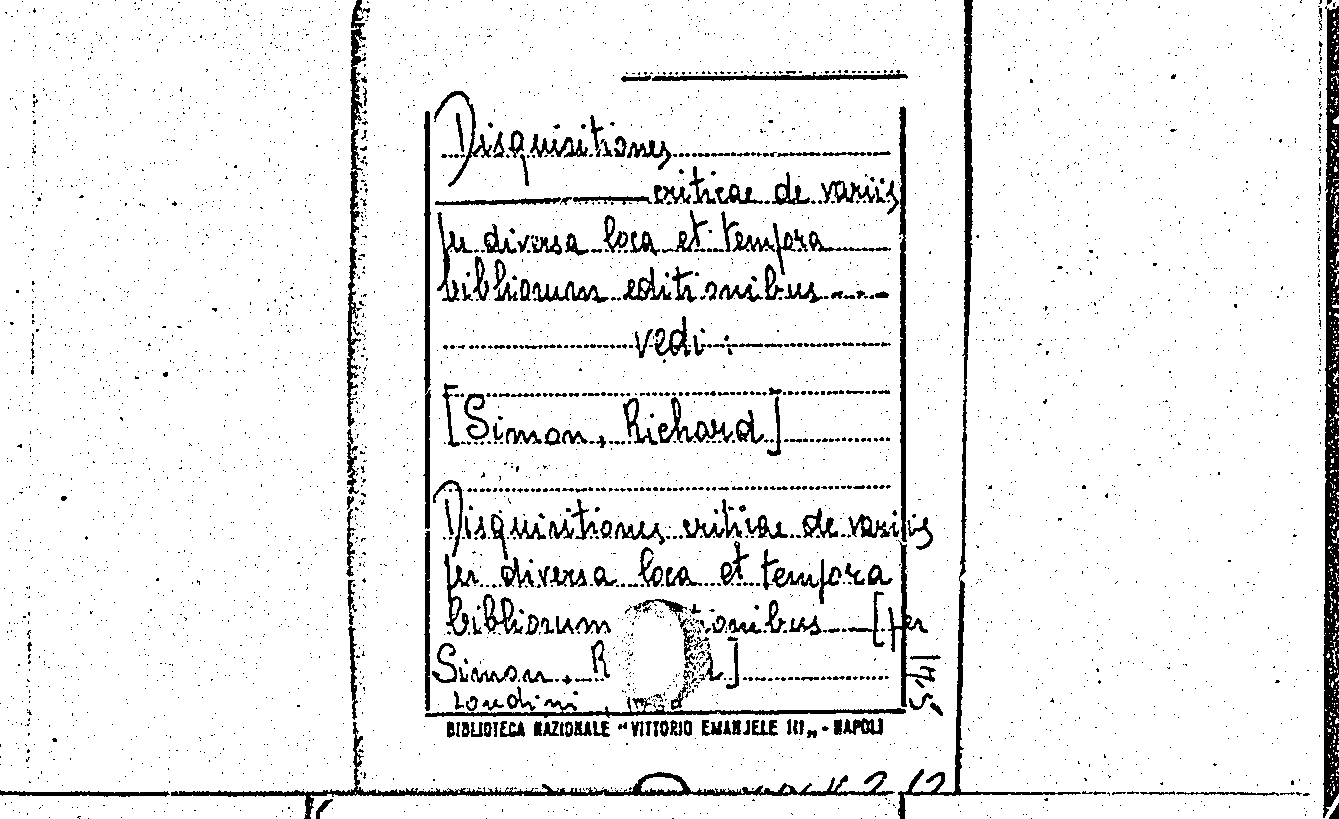 Disquisitiones
criticae de variis
per diversa loca et tempora
bibliorum editionibus
vedi:
[Simon, Richard]
Disquisitiones criticae de variis
per diversa loca et tempora
bibliorum onibus [per
Simon, R
Londini,
BIBLIOTECA NAZIONALE "VITTORIO EMANUELE III„ - NAPOLI